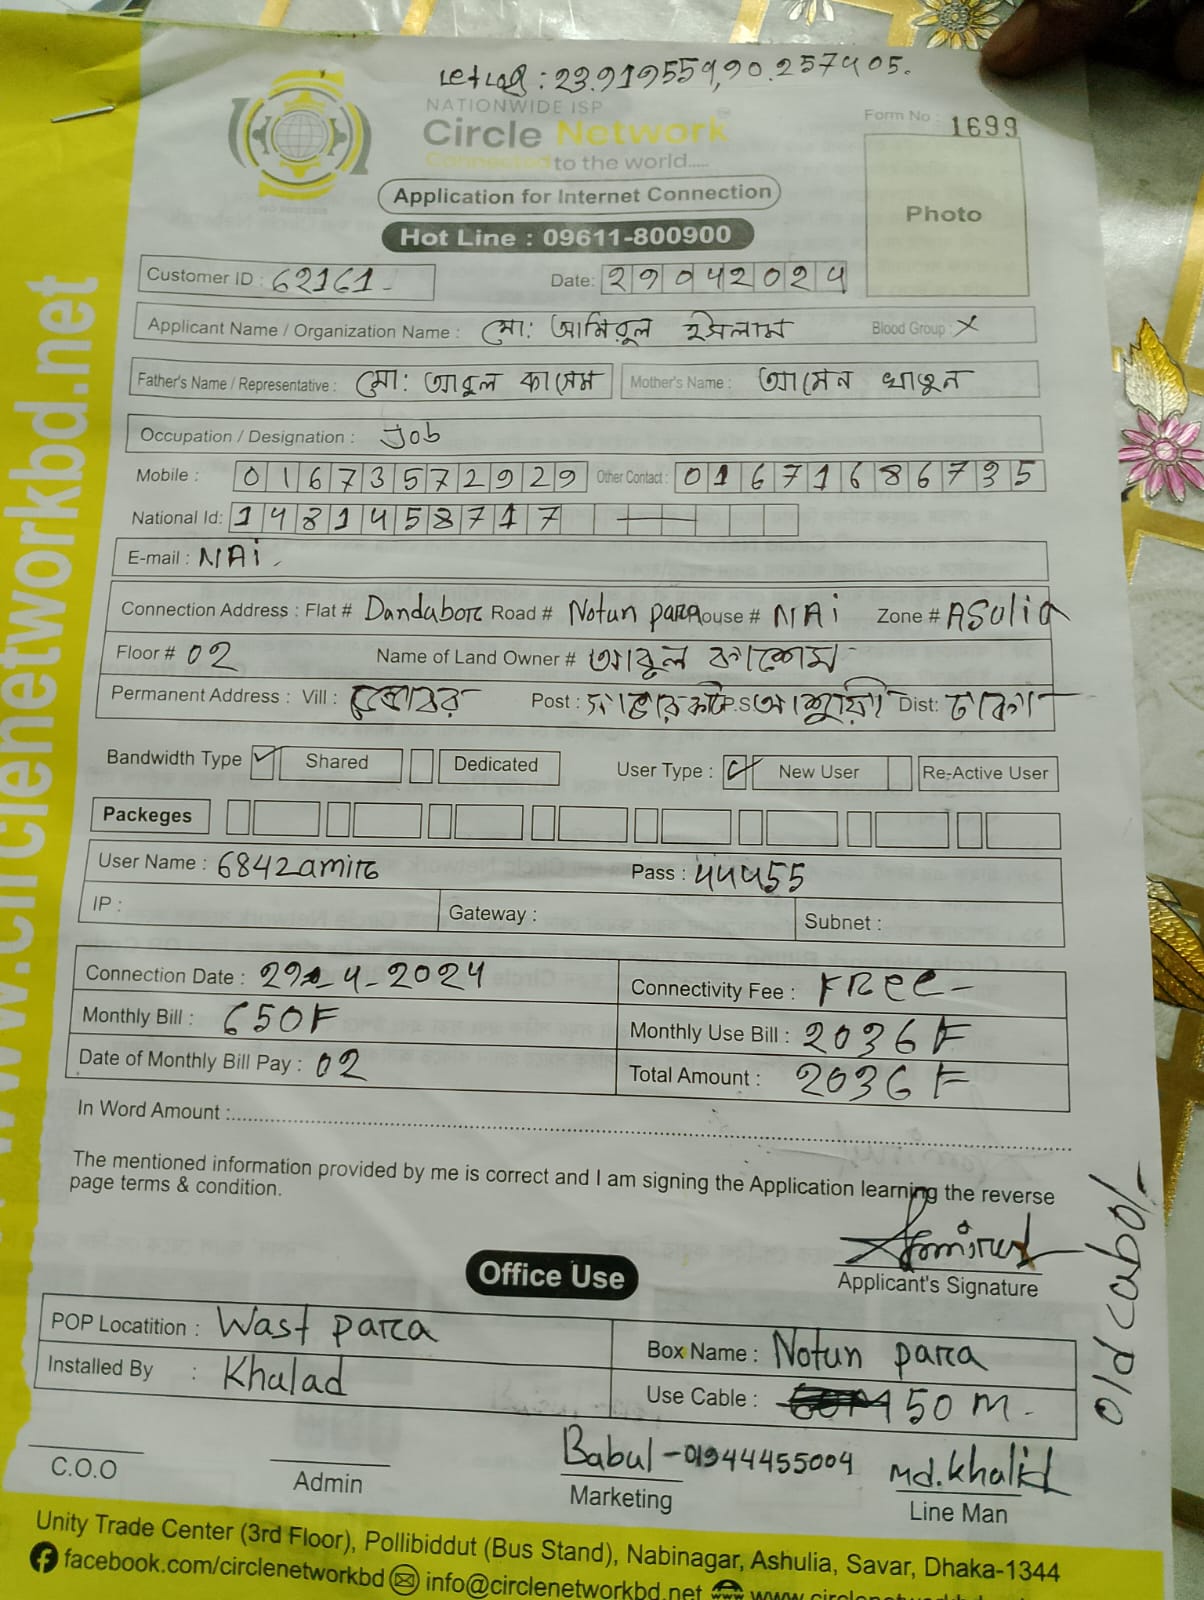 Let Log : 23.919559,90.257405.
NATIONWIDE ISP
Circle Network
Connected to the world.....
Form No : 1699
Photo
Application for Internet Connection
Hot Line : 09611-800900
Customer ID : 62161 Date: 29042024
Applicant Name / Organization Name : মো: আমিরুল ইসলাম Blood Group : X
Father's Name / Representative : মো: আবুল কাসেম Mother's Name : আমেন খাতুন
Occupation / Designation : Job
Mobile : 01673572929 Other Contact : 01671686735
National Id: 1481458717
E-mail : NAi
Connection Address : Flat # Dandabor Road # Notun para House # NAi Zone # ASulia
Floor # 02 Name of Land Owner # আবুল কাশেম
Permanent Address : Vill : Post : P.S Dist: ঢাকা
Bandwidth Type Shared Dedicated User Type : New User Re-Active User
Packeges
User Name : 6842amir Pass : 44455
IP : Gateway : Subnet :
Connection Date : 29-4-2024 Connectivity Fee : FRee
Monthly Bill : 650 Monthly Use Bill : 2036
Date of Monthly Bill Pay : 02 Total Amount : 2036
In Word Amount :
The mentioned information provided by me is correct and I am signing the Application learning the reverse
page terms & condition.
Amirul
Applicant's Signature
Office Use
POP Locatition : Wast para Box Name : Notun para
Installed By : Khalad Use Cable : 50 M.
Babul - 01944455004 md.khalid
C.O.O Admin Marketing Line Man
Unity Trade Center (3rd Floor), Pollibiddut (Bus Stand), Nabinagar, Ashulia, Savar, Dhaka-1344
facebook.com/circlenetworkbd info@circlenetworkbd.net
www.circlenetworkbd.net
old cabol